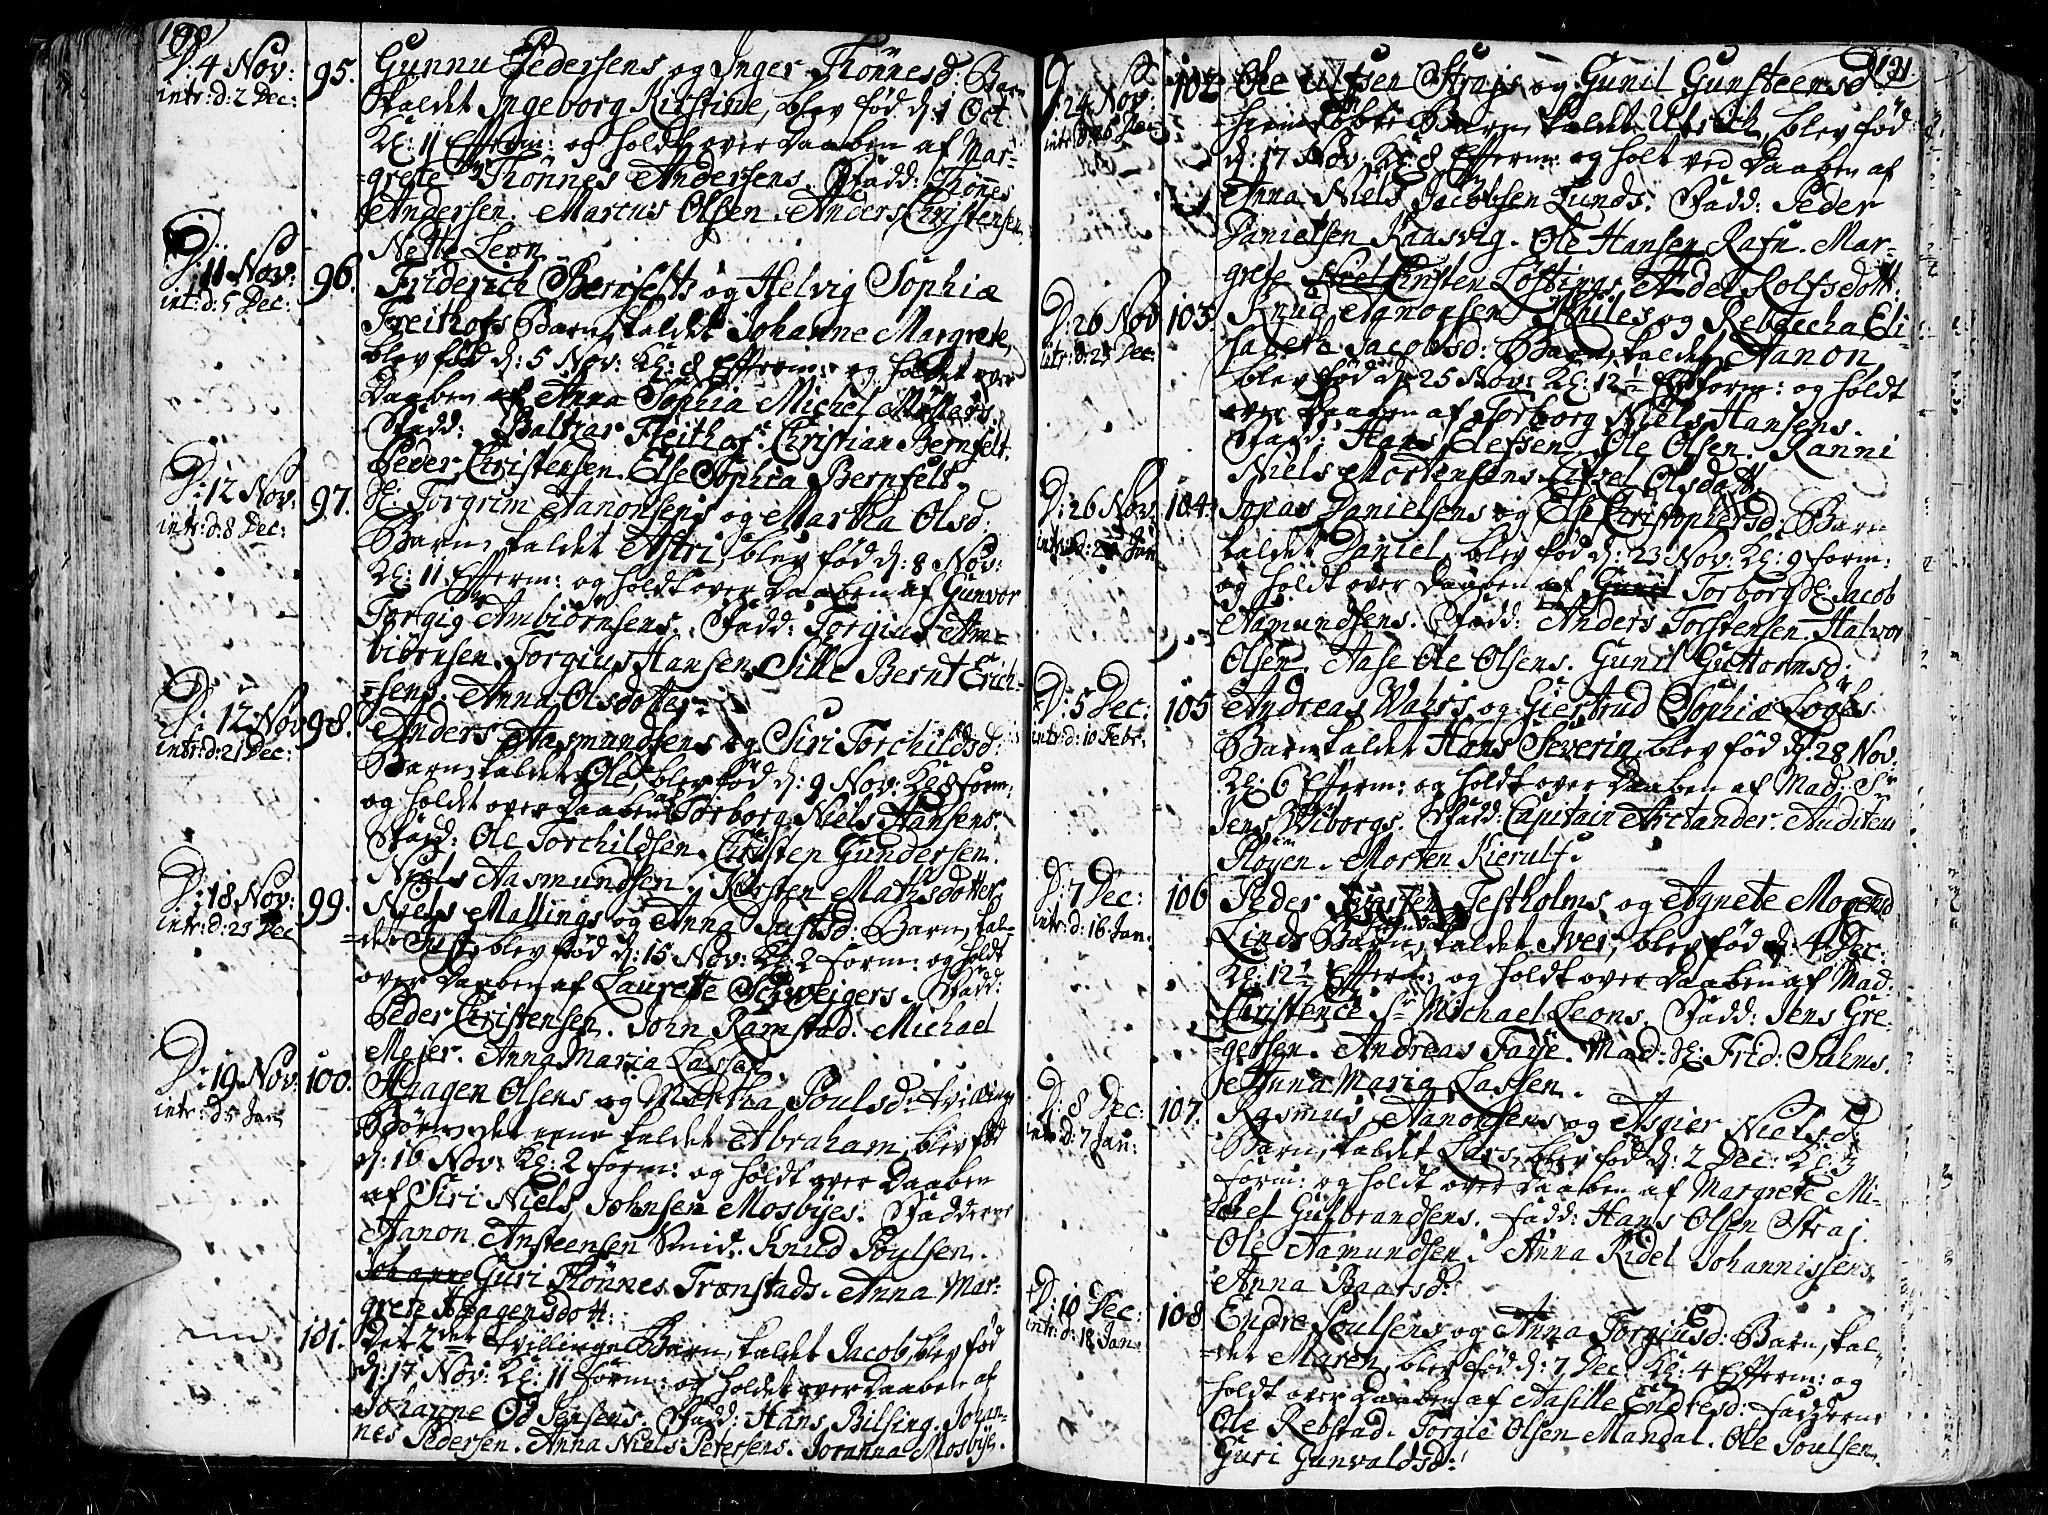 190
D: 4 Nov:
intr: d: 2 Dec:
95.
Gunnu Pedersens og Inger Thönnesd: Barn
kaldet Ingeborg Kirstine, blev fød d: 1 Oct
Kl: 11 Efferm: og holdt over Daaben af Mar=
=grete Thönnes Andersens. Fadd: Thönnes
Andersen. Marcus Olsen. Anders Christensen.
Nelle Leon.
D: 11 Nov:
int: d: 5 Dec:
96.
Friderich Bernfelts og Helvig Sophiæ
Freithofs Barn, kaldet Johanne Margrete,
blev fød d: 5 Nov: Kl: 8 Efferm: og holdet over
Daaben af Anna Sophia Michel Möllers
Fadd: Baltzar Freithof. Christian Bernfelt.
Peder Christensen. Else Sophia Bernfelt.
D: 12 Nov:
intr: d: 8 Dec:
97.
Torgrim Aanonsens og Martha Olsd:
Barn, kaldet Astri, blev fød d: 8 Nov:
Kl: 11 Efferm: og holdt over Daaben af Gunvor
Torgig Ambiörnsens. Fadd: Torgius Am=
biörnsen. Torgius Hansen. Sille Bernt Erich=
=sens. Anna Olsdotter.
D: 12 Nov
intr: d: 21 Dec:
98.
Anders Aasmundsens og Siri Torchildsd:
Barn, kaldet Ole, blev fød d: 9 Nov: Kl 8 form:
og holdet over Daaben af Torborg Niels Hansens.
Fadd: Ole Torchildsen. Christen Gundersen.
Niels Aasmundsen. Kirsten Mathisdotter
D: 18 Nov:
intr: d: 23 Dec
99.
Niels Mallings og Anna Justsd: Barn, kal=
=det Just, blev fød d: 15 Nov: Kl: 2 form: og holdt
over Daaben af Laurette Schweigers. Fadd:
Peder Christensen. John Ramstad. Michael
Meier. Anna Maria Lassen.
D: 19 Nov:
intr: d 5 Jan
100.
Haagen Olsens og Martha Poulsd: tvillinge
Börn, det eene kaldet Abraham, blev fød
d: 16 Nov: Kl: 2 form: og holdt over Daaben
af Siri Niels Johnsen Mosbyes. Fadderne
Aanon Ansteensen Smid. Knud Poulsen.
Johanne Guri Thönnes Tronstads. Anna Mar=
grete Haagensdott:
101.
Det 2det tvillinge Barn, kaldet Jacob, blev fød
d: 17 Nov: Kl: 11 form: og holdet over Daaben af
Johanne Od Jensens. Fadd: Hans Bilsing. Johan=
nes Pedersen. Anna Niels Petersens. Joranna Mosbye.
191.
D: 24 Nov:
intr: d: 26 Dec
102
Ole Ulfsen Strajs og Gunil Gunsteensd
Barn, kaldet Ulrich, blev fød
d: 17 Nov: Kl: 8 Efferm: og holt ved Daaben af
Anna Niels Jacobsen Lunds. Fadd: Peder
Danielsen Raasvig. Ole Hansen Rafn. Mar=
grete Christen Löftings. Adel Rolfsdott:
D: 26 Nov
intr: d: 23 Dec:
103.
Knud Aanonsen Kiles og Rebaccha Eli=
=sabeth Jacobsd: Barn, kaldet Aanon
blev fød d: 25 Nov: Kl: 12½ Efferm: og holdt
over Daaben af Torborg Niels Hansens.
Fadd: Hans Elefsen. Ole Olsen. Ranni
Niels Mortensens. Sissel Olsdott
D: 26 Nov.
intr: d: Jan
104.
Jonas Danielsens og Else Christophersd: Barn
kaldet Daniel, blev fød d: 23 Nov: Kl: 9 form:
og holdt over Daaben af Gunil Torborg Jacob
Aamundsens. Fadd: Anders Torstensen. Halvor
Olsen. Aase Ole Olsens. Gunil Guttormsd:
D: 5 Dec:
intr: d: 10 Febr:
105
Andreas Wahrs og Giertrud Sophiæ Logs
Barn, kaldet Hans Severin, blev fød d: 28 Nov:
Kl: 6 Efferm: og holdt over Daaben af Mad: Sr
Jens Wiborgs. Fadd: Capitain Arctander. Auditeur
Ployen. Morten Kierulf.
D: 7 Dec:
intr: d: 16 Jan:
106
Peder Testholms, og Agnete Mogensd
Linds Barn, kaldet Iver, blev fød d: 4 Dec:
Kl: 12½ Efferm: og holdt over Daaben af Mad:
Christence Sr Michael Leons. Fadd: Jens Gre=
=gersen. Andreas Faye. Mad: Frid: Salms.
Anna Maria Lassen.
D: 8 Dec:
intr: d: 7 Jan:
107.
Rasmus Aanonsens og Asgier Nielsd:
Barn, kaldet Lars, blev fød d: 2 Dec: Kl: 3
form: og holdt over Daaben af Margrete Mi=
chel Gulbrandsens. Fadd: Hans Olsen Straj.
Ole Aamundsen. Anna Ridel Johannissens.
Anna Baarsd:
D: 10 Dec:
intr: d: 18 Jan:
108
Endre Poulsens og Anna Torgiusd: Barn, kal=
=det Maren, blev fød d: 7 Dec: Kl: 4 Efferm: og
holdt over Daaben af Aasille Endresd: Fadderne
Ole Rebstad. Torgie Olsen Mandal. Ole Poulsen.
Guri Gunvaldsd: